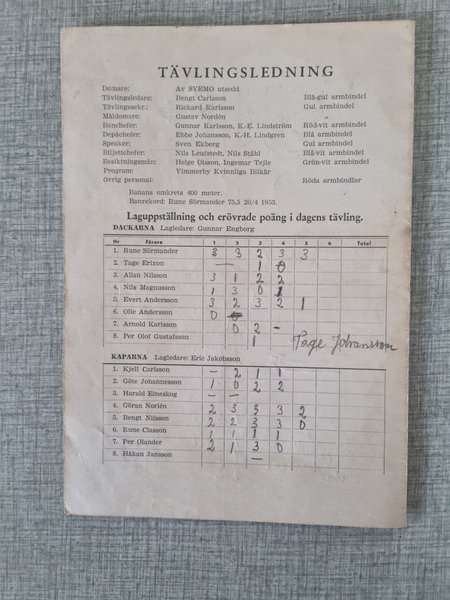 TÄVLINGSLEDNING
Domare: Av SVEMO utsedd
Tävlingsledare: Bengt Carlsson Blå-gul armbindel
Tävlingssekr.: Rickard Karlsson Gul armbindel
Måldomare: Gustav Nordén „
Banchefer: Gunnar Karlsson, K.-E. Lindström Röd-vit armbindel
Depåchefer: Ebbe Johansson, K.-H. Lindgren Blå armbindel
Speaker: Sven Ekberg Gul armbindel
Biljettchefer: Nils Leufstedt, Nils Ståhl Blå-vit armbindel
Besiktningsmän: Helge Olsson, Ingemar Tejle Grön-vit armbindel
Program: Vimmerby Kvinnliga Bilkår
Övrig personal: Röda armbindlar
Banans omkrets 400 meter.
Banrekord: Rune Sörmander 75,5 26/4 1953.
Laguppställning och erövrade poäng i dagens tävling.
DACKARNA Lagledare: Gunnar Engborg
Nr Förare 1 2 3 4 5 6 Total
1. Rune Sörmander 3 2 3 3
2. Tage Erixon — 1 0
3. Allan Nilsson 3 1 2 2
4. Nils Magnusson 1 3 0 1
5. Evert Andersson 3 2 3 2 1
6. Olle Andersson 0
7. Arnold Karlsson 0 2 -
8. Per Olof Gustafsson 1 Tage Johansson
KAPARNA Lagledare: Eric Jakobsson
1. Kjell Carlsson — 2 1 1
2. Göte Johannesson 1 0 2 2
3. Harald Eineskog — —
4. Göran Norlén 2 3 3 3 2
5. Bengt Nilsson 2 2 3 3 0
6. Rune Classon 1 1 1 1
7. Per Olander 2 1 3 0
8. Håkan Jansson —